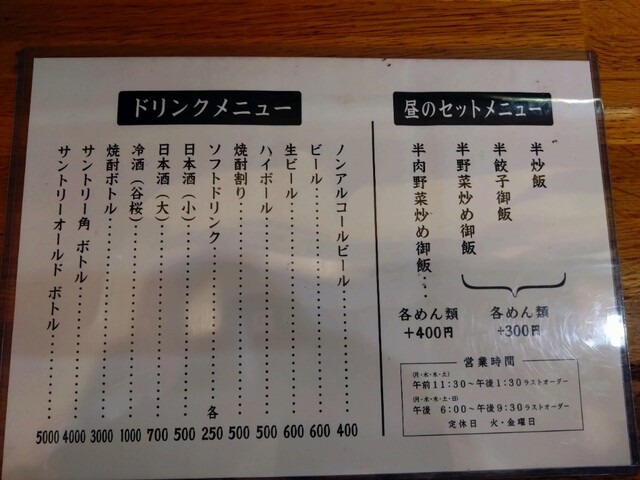 ドリンクメニュー
ノンアルコールビール 400
ビール 600
生ビール 600
ハイボール 500
焼酎割り 500
ソフトドリンク 各250
日本酒(小) 500
日本酒(大) 700
冷酒(谷桜) 1000
焼酎ボトル 3000
サントリー角 ボトル 4000
サントリーオールド ボトル 5000
昼のセットメニュー
半炒飯
半餃子御飯
半野菜炒め御飯
各めん類
+300円
半肉野菜炒め御飯
各めん類
+400円
営業時間
(月・木・水・土)
午前11:30～午後1:30ラストオーダー
(月・水・木・土・日)
午後 6:00～午後9:30ラストオーダー
定休日 火・金曜日